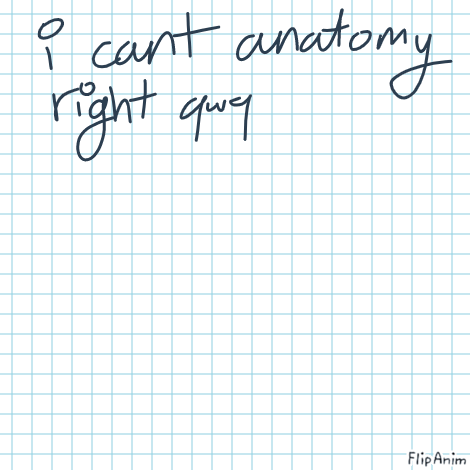 i cant anatomy
right qwq
FlipAnim